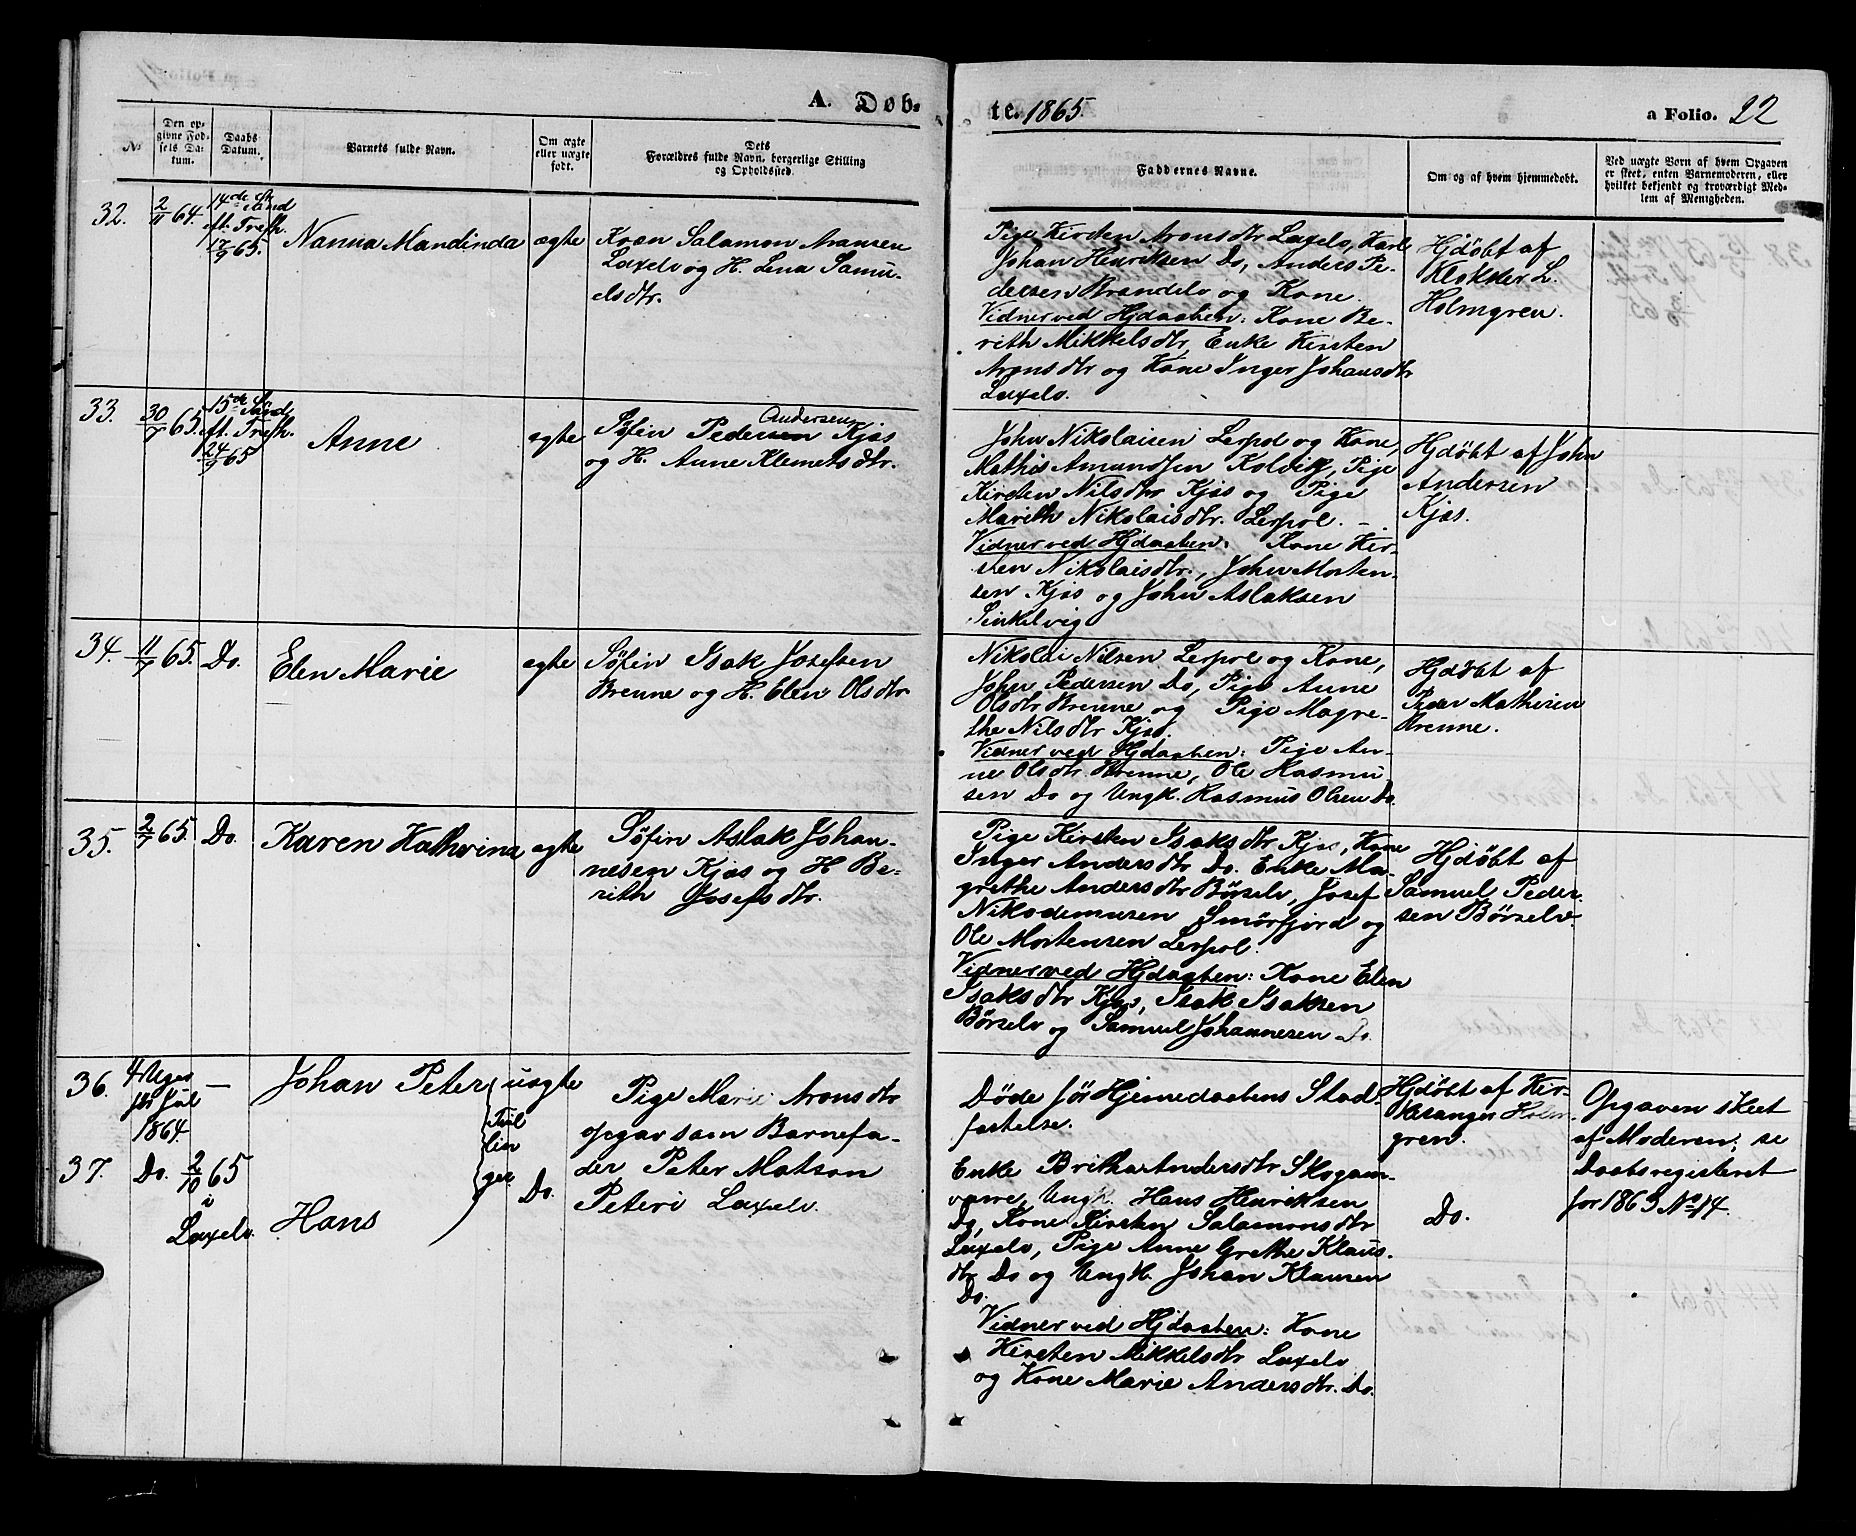 A. Døb-
te. 1865.
a Folio. 22
No
Den op-
givne Fød-
sels Da-
tum.
Daabs
Datum.
Barnets fulde Navn.
Om ægte
eller uægte
født.
Dets
Forældres fulde Navn, borgerlige Stilling
og Opholdssted.
Faddernes Navne.
Om og af hvem hjemmedøbt.
Ved uægte Børn af hvem Opgaven
er skeet, enten Barnemoderen, eller
hvilket bekjendt og troværdigt Med-
lem af Menigheden.
32.
2/11 64.
14de S.
Sönd
ft. Trefh.
17/9 65.
Nanna Mandinda
ægte
Kvæn Salamon Aronsen
Laxelv og H. Lena Samu-
elsdtr.
Pige Kirsten Aronsdtr Laxelv, Karl
Johan Henriksen Do, Anders Pe-
dersen Brandelv og Kone.
Vidner ved Hjdaaben: Kone Be-
rith Mikkelsdtr, Enke Kirsten
Aronsdtr og Kone Inger Johansdtr
Laxelv.
Hjdøbt af
Klokker L.
Holmgren.
33.
30/7 65.
15de S.
Sönd.
ft. Trefh.
24/9 65
Anne
ægte
Andersen
Søfin Pedersen Kjæs
og H. Anne Klemetsdtr.
John Nikolaisen Lerpol og Kone,
Mathis Amundsen Kolvig, Pige
Kirsten Nilsdtr Kjæs og Pige
Marith Nikolaisdtr. Lerpol. -
Vidner ved Hjdaaben: Kone Kir-
sten Nikolaisdtr., John Morten-
sen Kjæs og John Aslaksen
Sinkelvig
Hjdøbt af John
Andersen
Kjæs.
34.
11/7 65.
Do.
Elen Marie
ægte
Søfin Isak Josefsen
Brenne og H. Elen Olsdtr
Nikolai Nilsen Lerpol og Kone,
John Pedersen Do, Pige Anne
Olsdtr Brenne og Pige Magre-
the Nilsdtr Kjæs.
Vidner ved Hjdaaben: Pige An-
ne Olsdtr. Brenne, Ole Rasmu-
sen Do og Ungk. Rasmus Olsen Do.
Hjdøbt af
Peder Mathisen
Brenne.
35.
2/7 65.
Do.
Karen Kathrina
ægte
Søfin Aslak Johan-
nesen Kjæs og H. Be-
rith Josefsdtr.
Pige Kirsten Isaksdtr Kjæs, Kone
Inger Andersdtr Do. Enke Ma-
grethe Andersdtr Børselv, Josef
Nikodemusen Smørfjord og
Ole Mortensen Lerpol.
Vidner ved Hjdaaben: Kone Elen
Isaksdtr Kjæs, Isak Isaksen
Børselv og Samuel Johannesen Do.
Hjdøbt af
Samuel Peder-
sen Børselv.
36.
4 Uger
før Jul
1864.
—
Johan Peter
uægte
Tvil
lin
ger
Pige Marie Aronsdtr
opgav som Barnefa-
der Peter Matson
Peteri Laxelv.
Døde før Hjemedaabens Stad-
fæstelse.
Hjdøbt af Kir-
kesanger Holm-
gren.
Opgaven skeet
af Moderen; se
Daabsregisteret
for 1863 No 14.
37.
Do.
2/10 65
i
Laxelv.
Hans
Do.
Enke Britha Andersdtr Skogan-
varre, Ungk. Hans Henriksen
Do, Kone Kirsten Salamonsdtr
Laxelv, Pige Anne Grethe Klaus-
dtr Do og Ungk. Johan Klausen
Do.
Vidner ved Hjdaaben: Kone
Kirsten Mikkelsdtr Laxelv
og Kone Marie Andersdtr. Do.
Do.